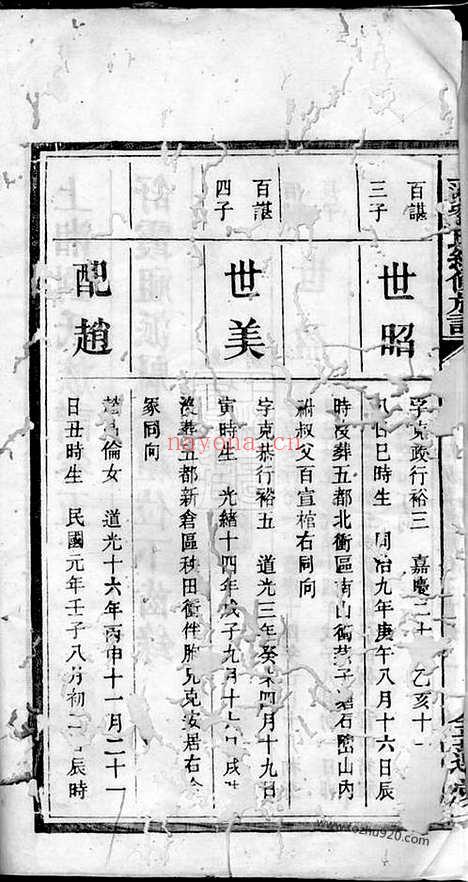 百諶
三子
世昭
字克政行裕三 嘉慶二十 乙亥十
巳時生 同治九年庚午八月十六日辰
時沒葬五都北衝區南山衝 子 石 山內
祔叔父百宣棺右同向
百諶
四子
世美
字克恭行裕五 道光三年癸未四月十九日
寅時生 光緒十四年戊子九月十 日戌
沒葬五都新倉區秧田衝伴胞兄克安居右
冢同向
配趙
倫女 道光十六年丙申十一月二十一
日丑時生 民國元年壬子八月初二日辰時
nayona.cn
www.tozhu920.com